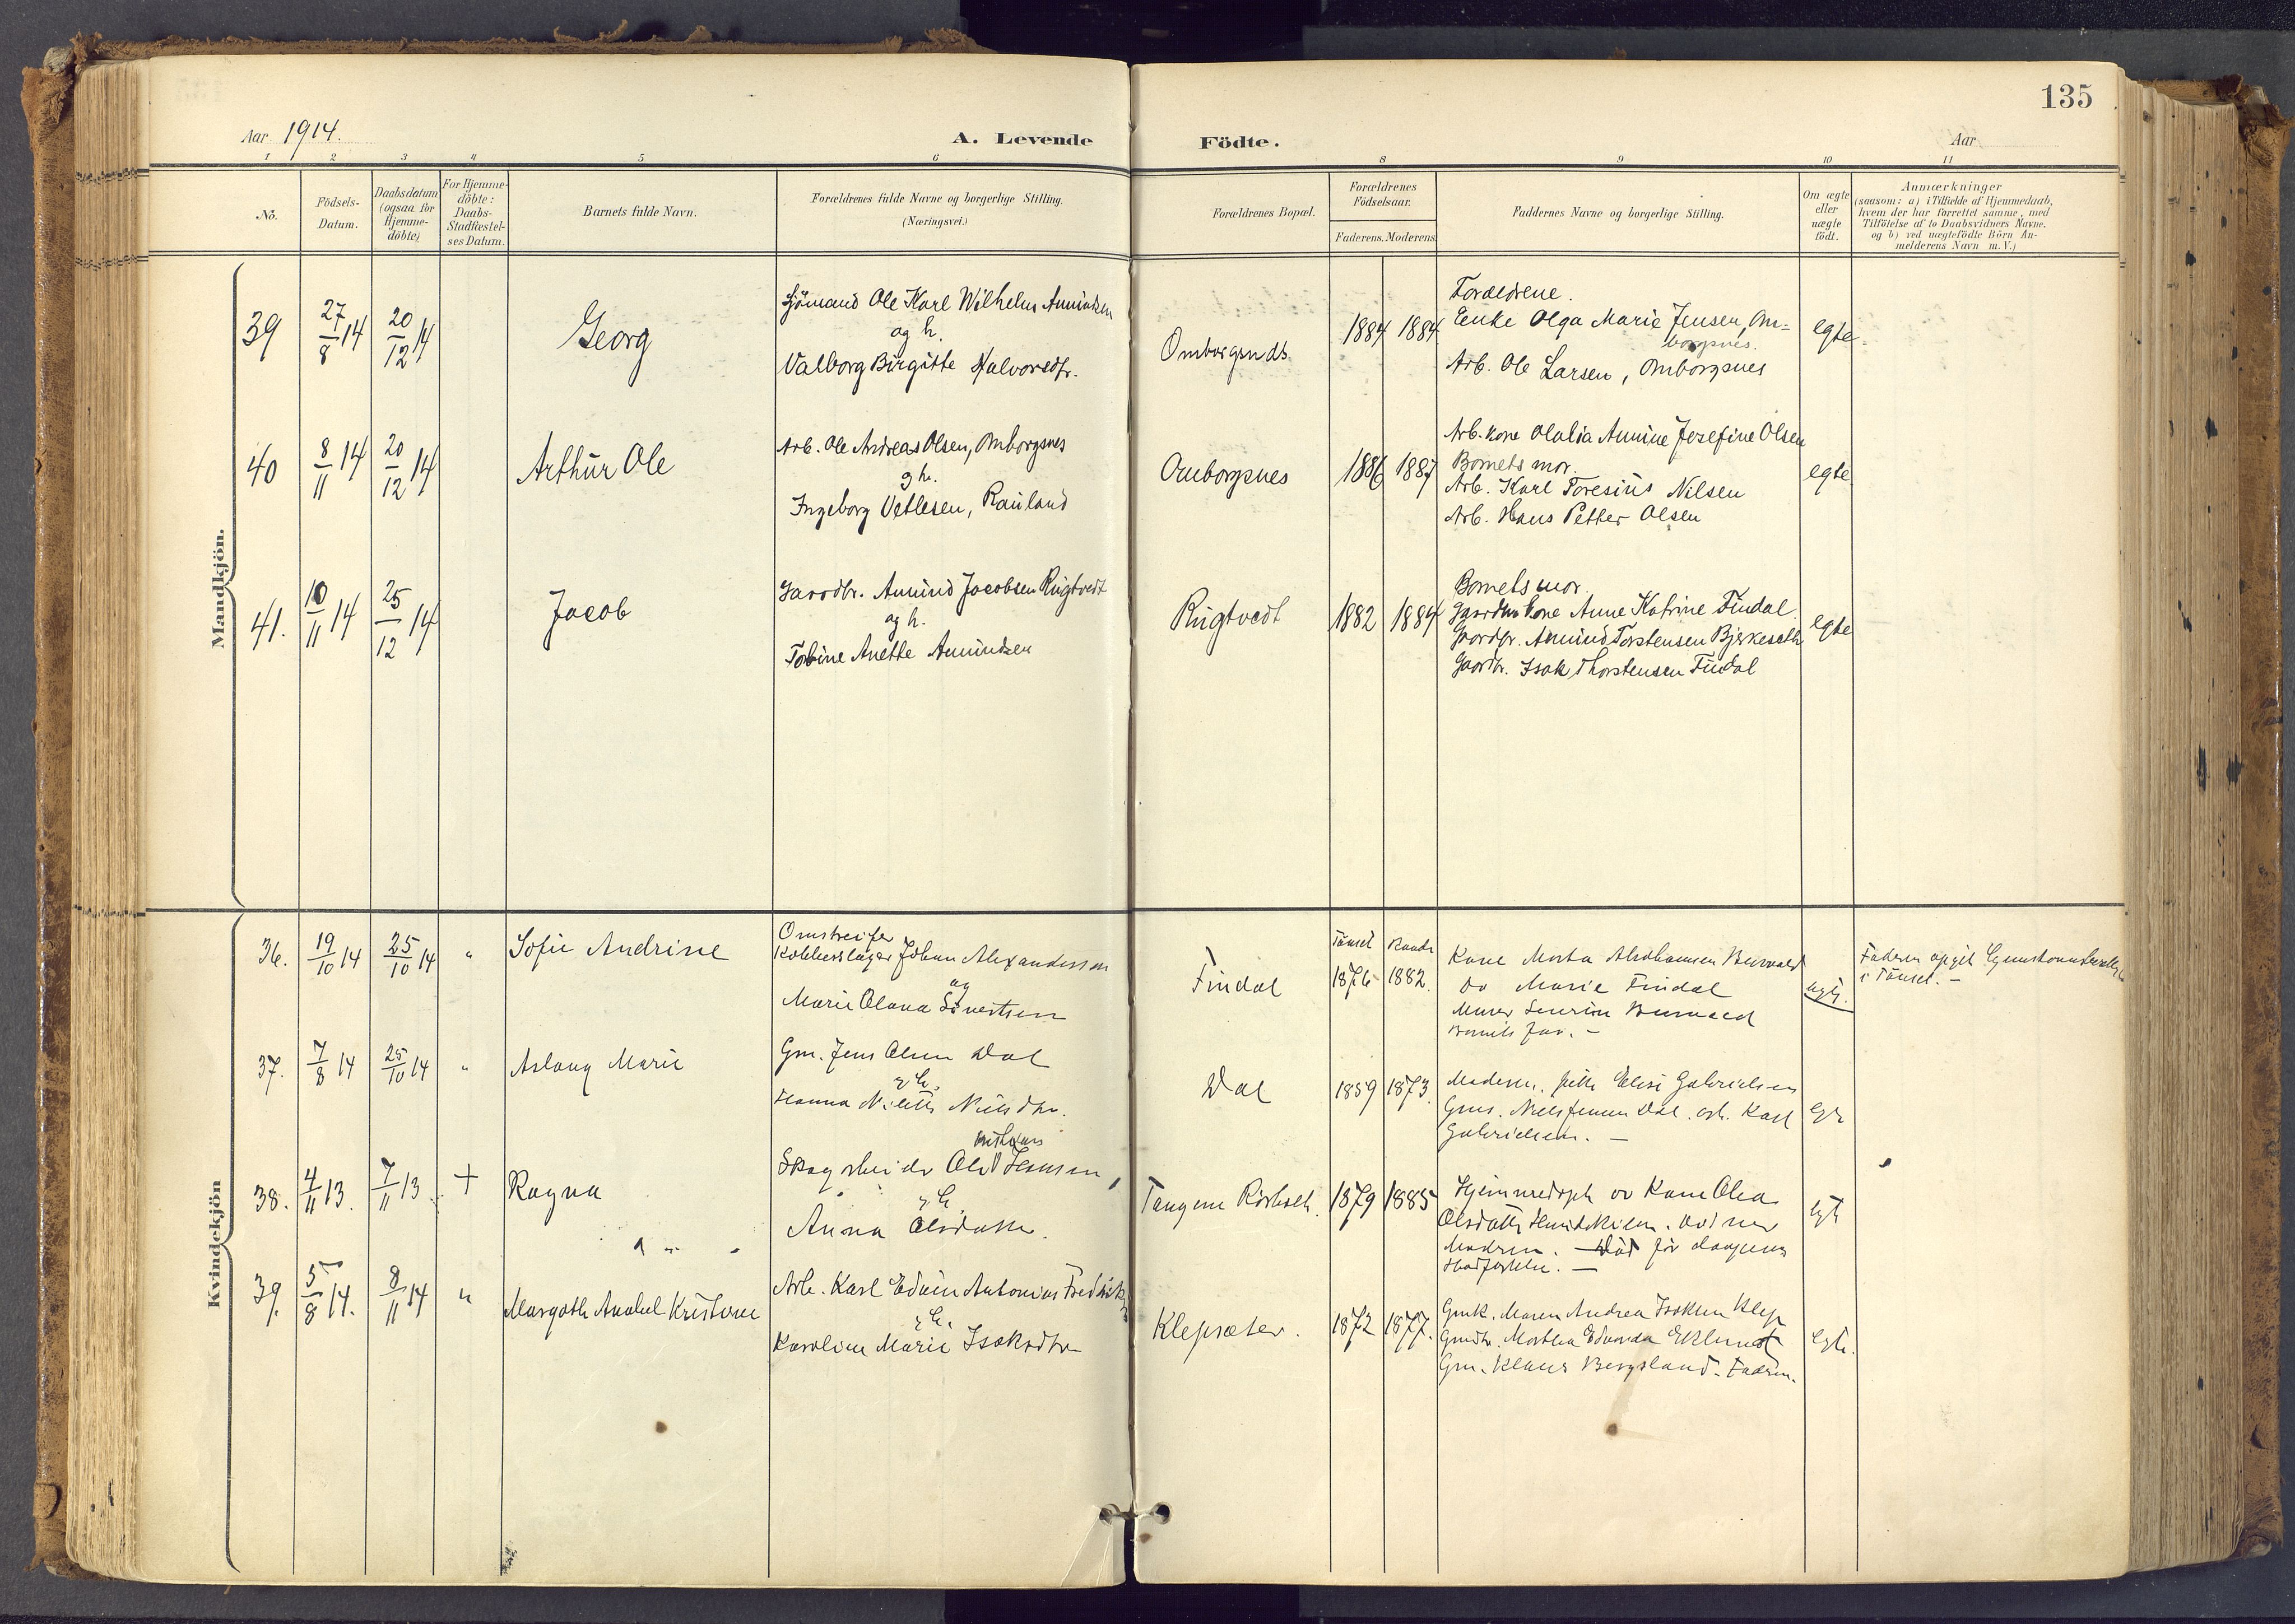 135
Aar 1914.
A. Levende
Födte.
Aar
1 2 3 4 5 6 8 9 10 11
No.
Födsels-
Datum.
Daabsdatum
(ogsaa for
Hjemme-
döbte)
For Hjemme-
döbte:
Daabs-
Stadfæstel-
ses Datum.
Barnets fulde Navn.
Forældrenes fulde Navne og borgerlige Stilling.
(Næringsvei.)
Forældrenes Bopæl.
Forældrenes
Födselsaar.
Faderens. Moderens.
Faddernes Navne og borgerlige Stilling.
Om ægte
eller
uægte
födt.
Anmærkninger
(saasom: a) i Tilfælde af Hjemmedaab,
hvem der har forrettet samme, med
Tilföielse af to Daabsvidners Navne.
og b) ved uægtefödte Börn An-
melderens Navn m. V.)
Mandkjön.
39 27/8 14 20/12 14
Georg
Sjömand Ole Karl Wilhelm Amundsen
og h.
Valborg Birgitte Halvorsdtr.
Omborgsnds
1884 1884
Forældrene.
Enke Olga Marie Jensen, Om=
borgsnes.
Arb. Ole Larsen, Omborgsnes
egte
40 8/11 14 20/12 14
Arthur Ole
Arb. Ole Andreas Olsen, Omborgsnes
g h.
Ingeborg Vetlesen, Rauland
Omborgsnes
1886 1887
Arb. kone Olalia Annine Jozefine Olsen
Barnets mor.
Arb. Karl Toresius Nilsen
Arb. Hans Petter Olsen
egte
41. 10/11 14 25/12 14
Jacob
Gaardbr. Amund Jacobsen Rugtvedt
og h.
Tobine Anette Amundsen
Rugtvedt
1882 1884
Barnets mor.
Gaardbr. kone Anne Katrine Findal
Gaardbr. Amund Torstensen Bjerkeseth
Gaardbr. Isak Thorstensen Findal
egte
Kvindekjön
36. 19/10 14 25/10 14 "
Sofie Andrine
Omstreifer
Kobberslager Johan Alexandersson
og
Marie Olava Sivertsen
Findal
Tönset
1876 1882.
Kone Marta Abrahamsen
ov Marie Findal
Murer
Barnets far. -
Faderen opgit
i Tönset. -
37. 7/8 14 25/10 14 "
Aslaug Marie
Gm. Jens Olsen Dal
g h.
Hanna Nilsdtr.
Dal
1859 1873.
Moderen. Elise Gabrielsen
Gms. Niels Jensen Dal. Karl
Gabrielsen. -
38. 4/11 13. 7/11 13 +
Ragna
Skogarbeider Ole Hansen
g h.
Anna Olsdatter.
1879 1885
ov Kone Olea
Olsdatter
Modren. - Död för daapens
stadfestelse. -
39. 5/8 14. 8/11 14 "
Margoth Anabel Kristine
Arb. Karl Edvin Antonius Fredriks
g h.
Karoline Marie Isaksdtr
Klepsæter.
1872 1877.
Gmk. Maren Andrea Isaksen Klep
Gmdtr. Martha Edvarda Eklund
Gm. Klaus Bergsland. Fadren.
egte.